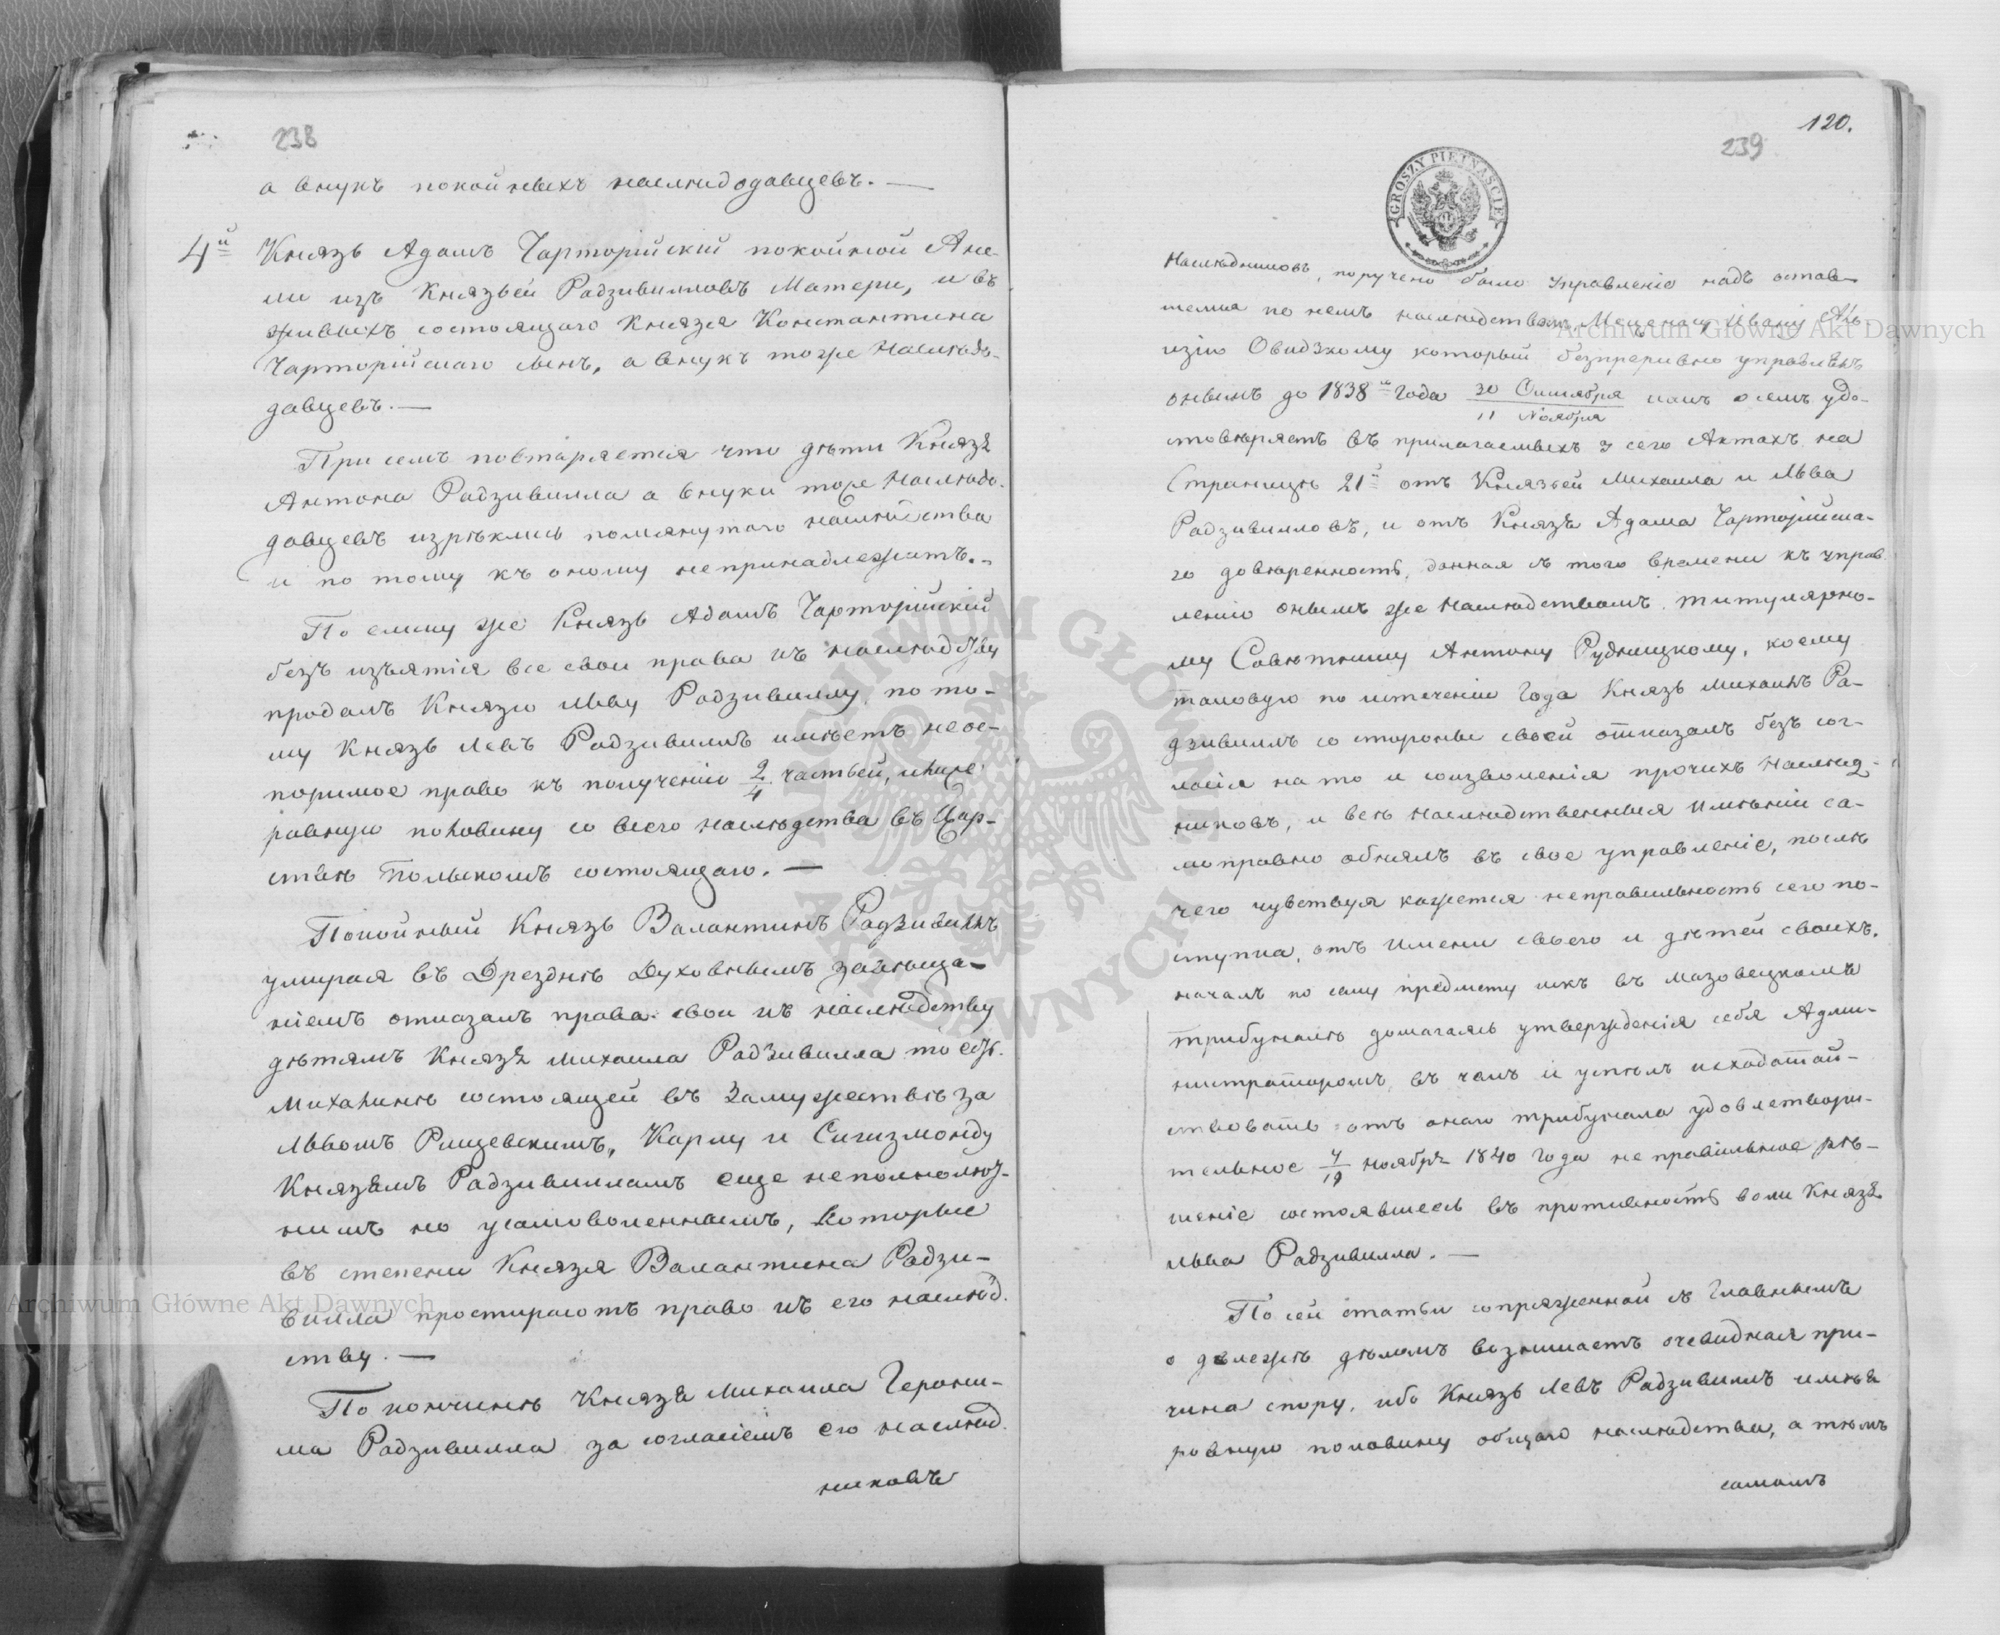 238
а внукъ покойныхъ наслѣдодавцевъ. —
4й Князь Адамъ Чарторійскій покойной Ане-
ли изъ Князьей Радзивилловъ Матери, и въ
живыхъ состоящаго Князя Константина
Чарторійскаго сынъ, а внукъ тоже Наслѣдо-
давцевъ. —
При семъ повтаряется что дѣти Князя
Антона Радзивилла а внуки тоже Наслѣдо-
давцевъ изрѣклись помянутаго наслѣдства
и по тому къ оному непринадлежатъ. -
По елику же Князь Адамъ Чарторійскій
безъ изъятія все свои права къ наслѣдству
продалъ Князю Льву Радзивиллу, по то-
му Князь Левъ Радзивиллъ имѣетъ неос-
поримое право къ полученію 2/4 частьей, ниже
равную половину со всего наслѣдства въ Цар-
ствѣ Польскомъ состоящаго. —
Покойный Князь Валантинъ Радзивиллъ
умирая въ Дрезднѣ Духовнымъ завѣща-
ніемъ отказалъ права свои къ наслѣдству
дѣтямъ Князя Михаила Радзивилла то есть.
Михалинѣ состоящей въ Замужествѣ за
Львомъ Рищевскимъ, Карлу и Сигизмонду
Князямъ Радзивилламъ еще неполнолѣт-
нимъ но усамоволеннымъ, Которые
въ степени Князя Валантина Радзи-
вилла простираютъ право къ его наслѣд-
ству. —
По кончинѣ Князя Михаила Герони-
ма Радзивилла за согласіемъ его наслѣд-
никовъ
120.
239
GROSZY PIĘTNAŚCIE
Наслѣдниковъ, поручено было Управленіе надъ остав-
шемся по немъ наслѣдствомъ Меценасу Ивану Ало-
изію Овидзкому который безпрерывно управлялъ
онымъ до 1838го Года 30 Октября / 11 Ноября какъ о семъ удо-
стовѣряетъ въ прилагаемыхъ у сего Актахъ на
Страницѣ 21й отъ Князьей Михаила и Льва
Радзивилловъ, и отъ Князя Адама Чарторійска-
го довѣренность, данная съ того времени къ управ-
ленію онымъ же Наслѣдствомъ титулярно-
му Совѣтнику Антону Рудницкому, коему
таковую по истеченіи Года Князь Михаилъ Ра-
дзивиллъ со стороны своей отказалъ безъ сог-
ласія на то и соизволенія прочихъ наслѣд-
никовъ, и всѣ Наслѣдственныя Имѣніи са-
моправно обнялъ въ свое управленіе, послѣ
чего чувствуя кажется неправильность сего по-
ступка, отъ имени своего и дѣтей своихъ.
началъ по сему предмету искъ въ Мазовецкомъ
трибуналѣ домагаясь утвержденія себя Адми-
нистраторомъ, въ чемъ и успѣлъ исходатай-
ствовать отъ онаго трибунала удовлетвори-
тельное 7/19 Ноября 1840 Года неправильное рѣ-
шеніе состоявшееся въ противность воли Князя
Льва Радзивилла. —
По сей статьи сопряженной съ Главнымъ
о дѣлежѣ дѣломъ возникаетъ очевидная при-
чина спору, ибо Князь Левъ Радзивиллъ имѣя
равную половину общаго наслѣдства, а тѣмъ
самымъ
Archiwum Główne Akt Dawnych
Archiwum Główne Akt Dawnych
ARCHIWUM GŁÓWNE AKT DAWNYCH